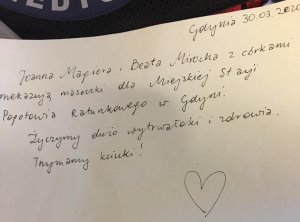 EDIC
Gdynia 30.03.2020
Joanna Magiera i Beata Mirocha z córkami
przekazują maseczki dla Miejskiej Stacji
Pogotowia Ratunkowego w Gdyni.
Życzymy dużo wytrwałości i zdrowia.
Trzymamy kciuki!